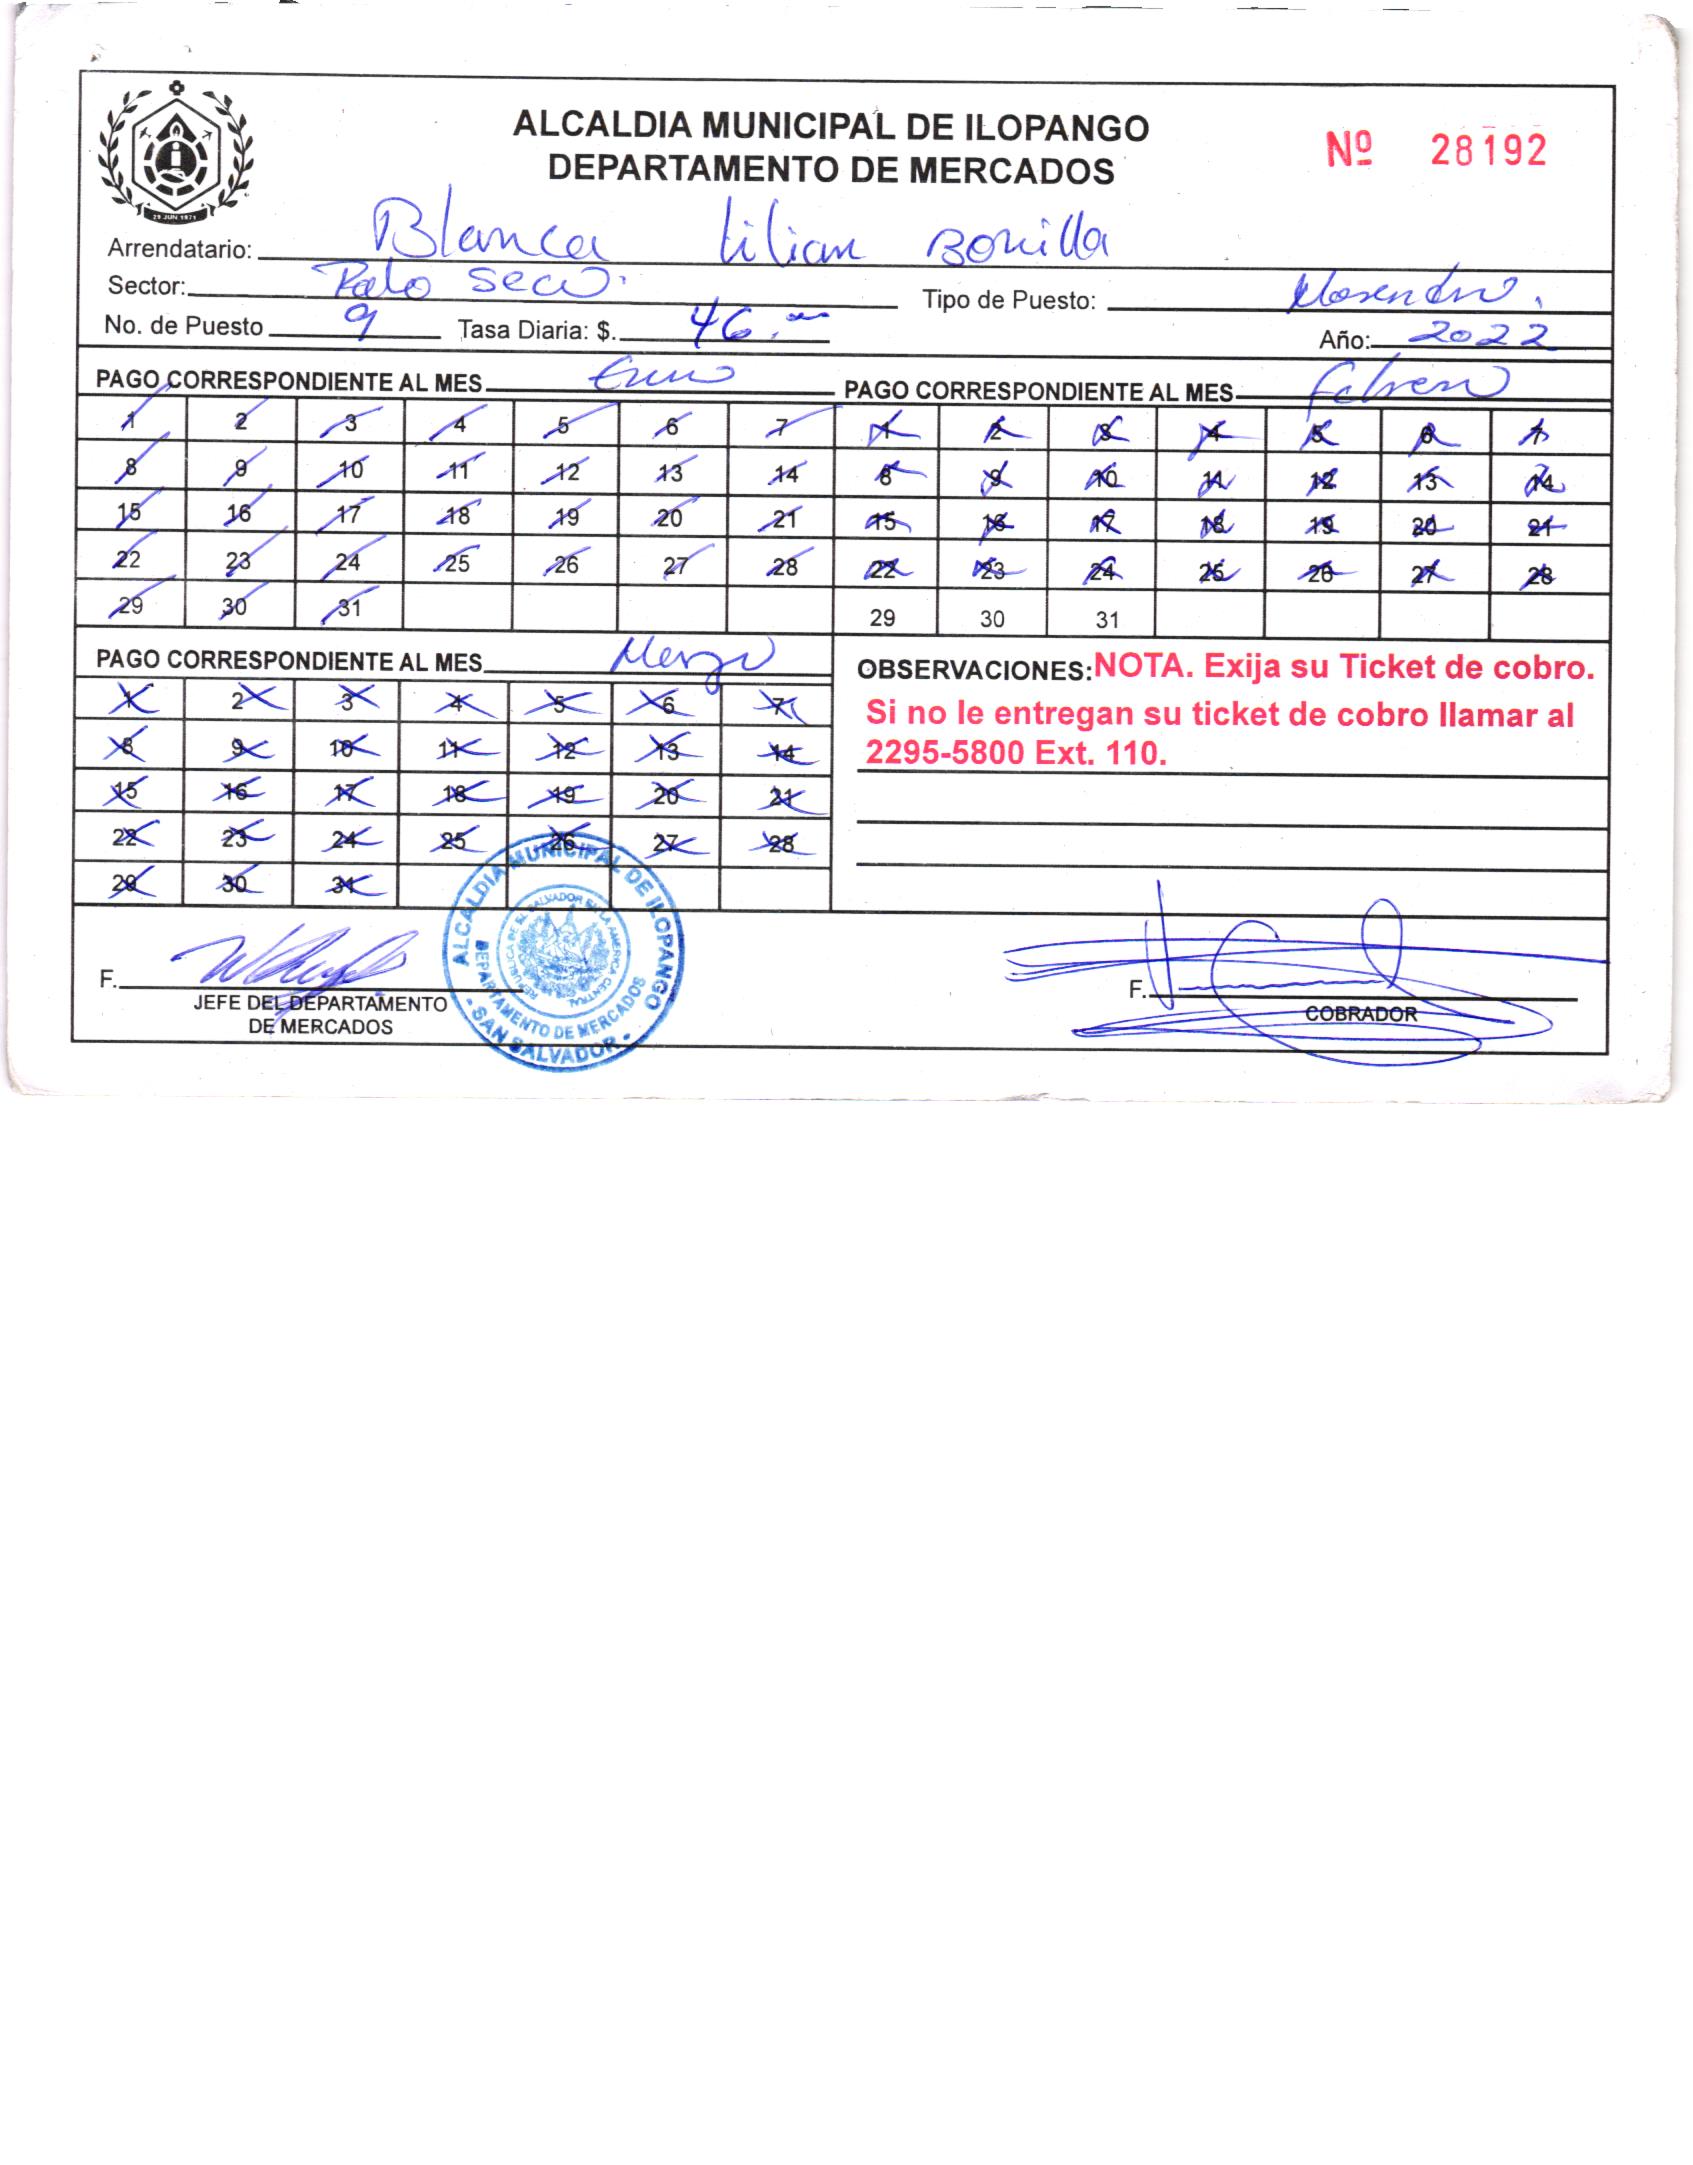 ALCALDIA MUNICIPAL DE ILOPANGO
DEPARTAMENTO DE MERCADOS
Nº 28192
29 JUN 1971
Arrendatario: Blanca Lilian Bonilla
Sector: Palo Seco.
Tipo de Puesto:
No. de Puesto 9 Tasa Diaria: $. 46.00
Año: 2022
PAGO CORRESPONDIENTE AL MES Enero
1 2 3 4 5 6 7
8 9 10 11 12 13 14
15 16 17 18 19 20 21
22 23 24 25 26 27 28
29 30 31
PAGO CORRESPONDIENTE AL MES Febrero
1 2 3 4 5 6 7
8 9 10 11 12 13 14
15 16 17 18 19 20 21
22 23 24 25 26 27 28
29 30 31
PAGO CORRESPONDIENTE AL MES Marzo
1 2 3 4 5 6 7
8 9 10 11 12 13 14
15 16 17 18 19 20 21
22 23 24 25 26 27 28
29 30 31
OBSERVACIONES: NOTA. Exija su Ticket de cobro.
Si no le entregan su ticket de cobro llamar al
2295-5800 Ext. 110.
F.
JEFE DEL DEPARTAMENTO
DE MERCADOS
ALCALDIA MUNICIPAL DE ILOPANGO
REPUBLICA DE EL SALVADOR EN LA AMERICA CENTRAL
DEPARTAMENTO DE MERCADOS
- SAN SALVADOR -
F.
COBRADOR